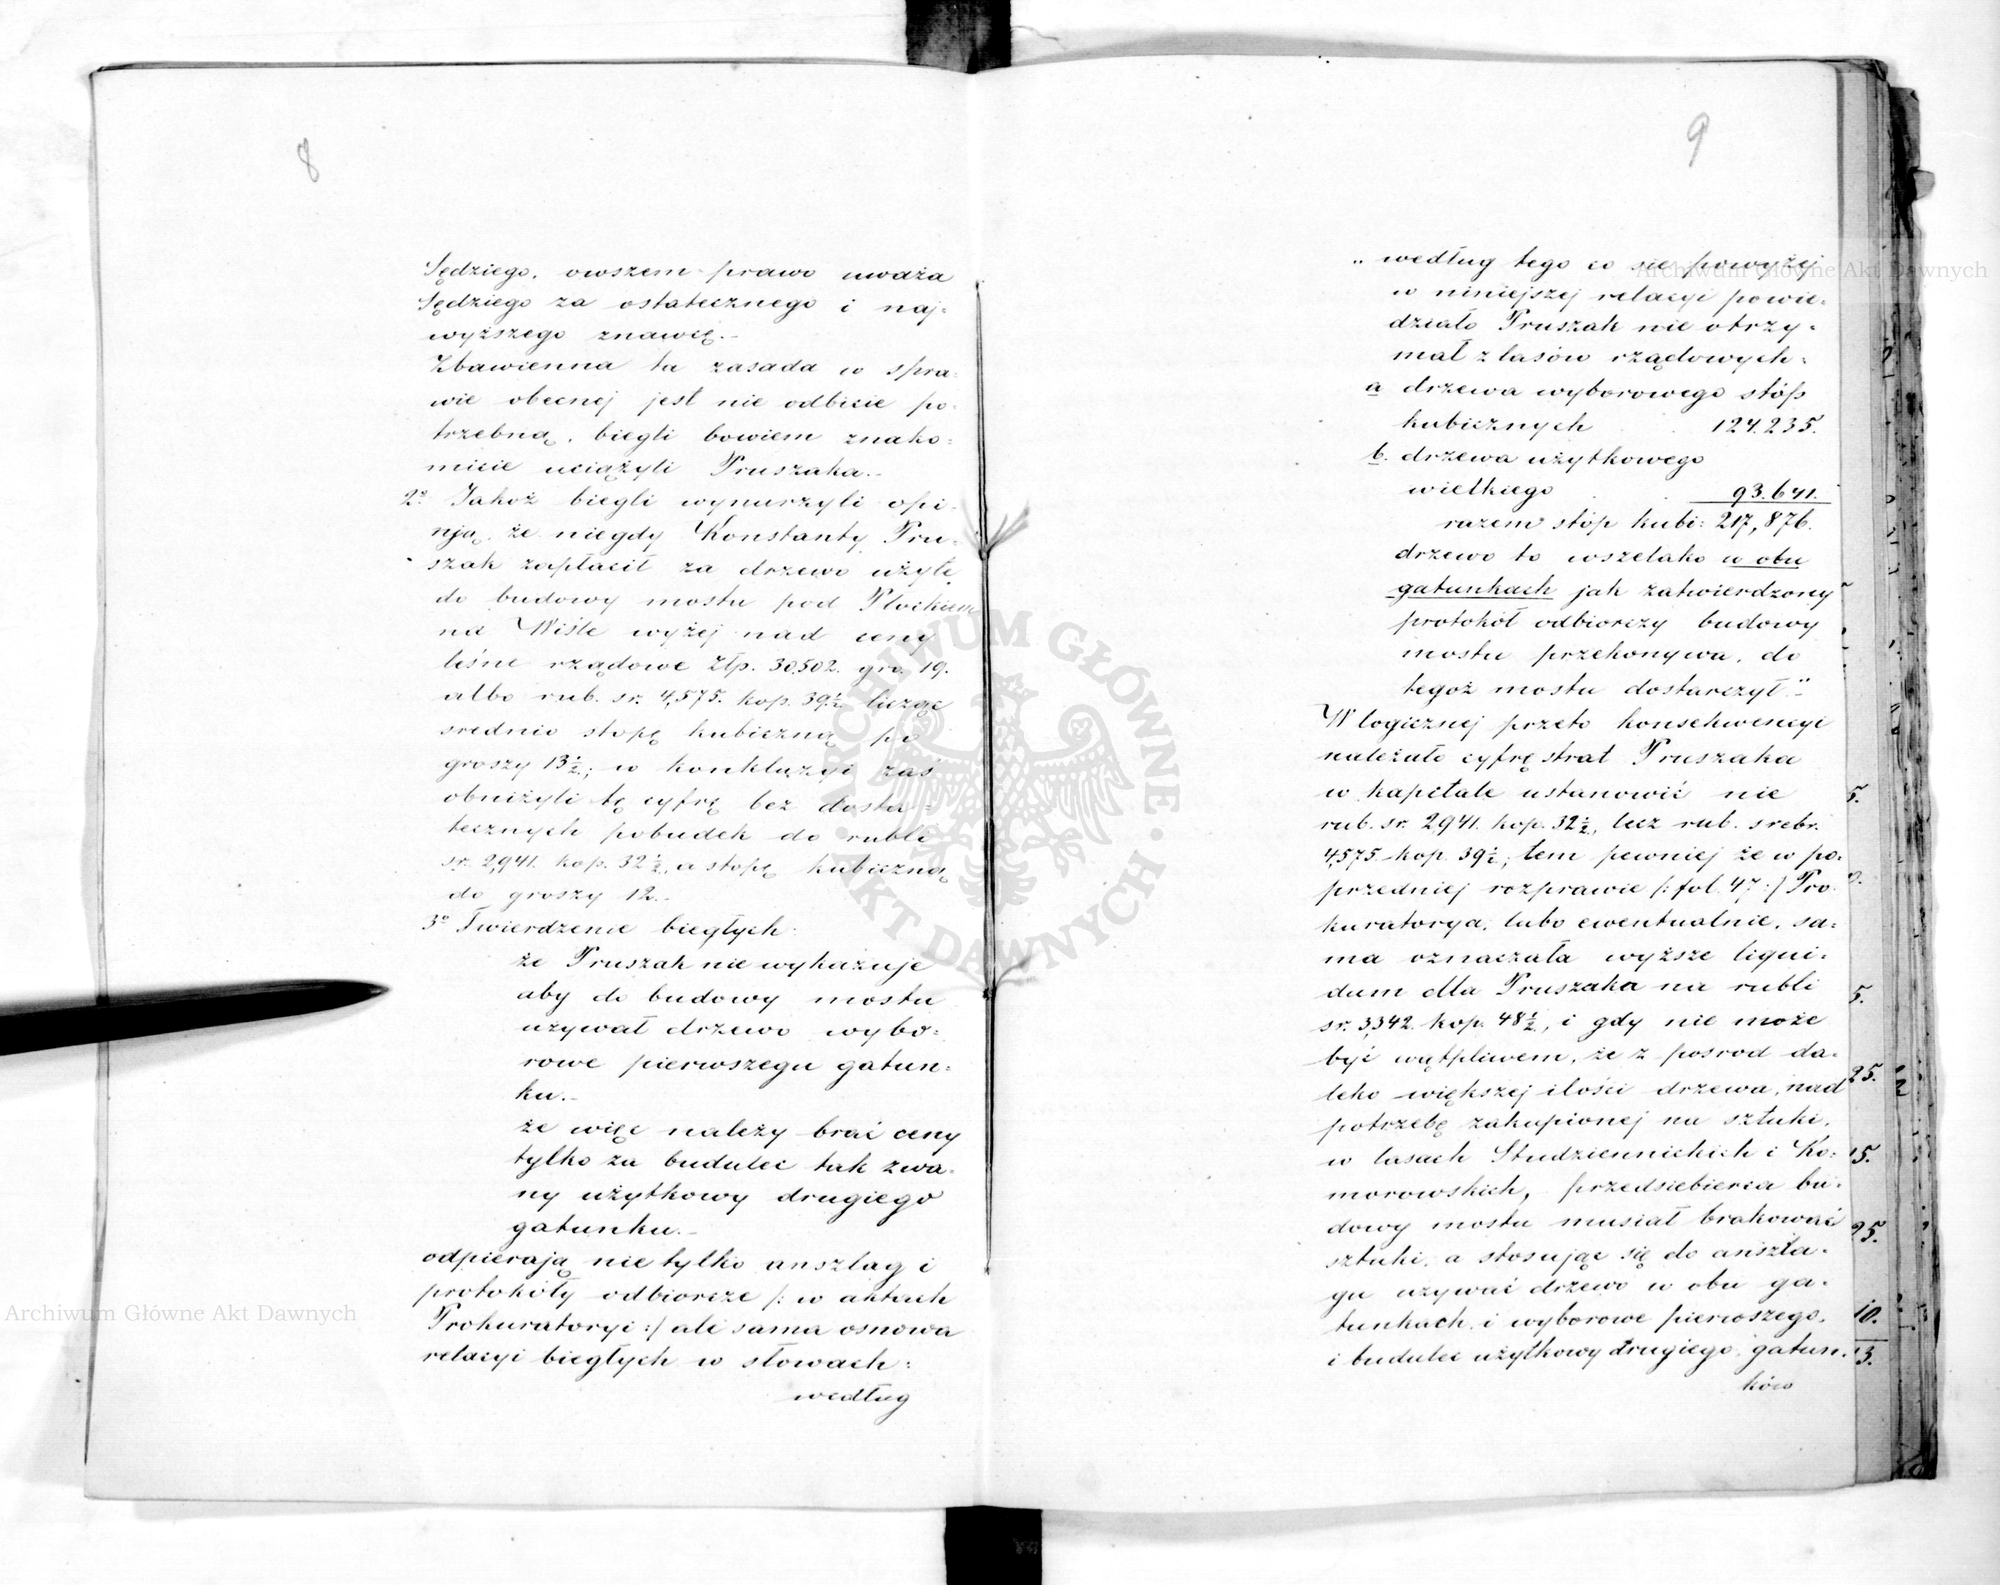 8
Sędziego, owszem prawo uważa
Sędziego za ostatecznego i naj-
wyższego znawcę.-
Zbawienna ta zasada w spra-
wie obecnej jest nie odbicie po-
trzebną, biegli bowiem znako-
micie uciążyli Pruszaka.-
2º Jakoż biegli wynurzyli opi-
nją, że niegdy Konstanty Pru-
szak zapłacił za drzewo użyte
do budowy mostu pod Płockiem
na Wiśle wyżej nad ceny
leśne rządowe Złp. 30,502. gro. 19.
albo rub. sr. 4,575. kop. 39½ licząc
srednio stopę kubiczną po
groszy 13½; w konkluzyi zaś
obniżyli tę cyfrę bez dosta-
tecznych pobudek do rubli
sr. 2,941. kop. 32½, a stopę kubiczną
do groszy 12.-
3º Twierdzenie biegłych:
że Pruszak nie wykazuje
aby do budowy mostu
używał drzewo wybo-
rowe pierwszego gatun-
ku.-
że więc należy brać ceny
tylko za budulec tak zwa-
ny użytkowy drugiego
gatunku.-
odpierają nie tylko anszlag i
protokóły odbiorcze /: w aktach
Prokuratoryi :/ ale sama osnowa
relacyi biegłych w słowach:
według
9
„według tego co się powyżej
w niniejszej relacyi powie-
działo Pruszak nie otrzy-
mał z lasów rządowych:
a drzewa wyborowego stóp
kubicznych 124.235.
b. drzewa użytkowego
wielkiego 93.641.
razem stóp kubi: 217,876.
drzewo to wszelako w obu
gatunkach jak zatwierdzony
protokół odbiorczy budowy
mostu przekonywa, do
tegoż mostu dostarczył."
W logicznej przeto konsekwencyi
należało cyfrę strat Pruszaka
w kapitale ustanowić nie
rub. sr. 2941. kop. 32½, lecz rub. srebr.
4,575 kop. 39½, tem pewniej że w po-
przedniej rozprawie /: fol. 47 :/ Pro-
kuratorya, lubo ewentualnie, sa-
ma oznaczała wyższe liqui-
dum dla Pruszaka na rubli
sr. 3,342. kop. 48½, i gdy nie może
być wątpliwem, że z pośrod da-
leko większej ilości drzewa, nad
potrzebę zakupionej na sztuki,
w lasach Studziennickich i Ko-
morowskich, przedsiebierca bu-
dowy mostu musiał brakować
sztuki, a stosując się do anszla-
gu używać drzewo w obu ga-
tunkach, i wyborowe pierwszego,
i budulec użytkowy drugiego, gatun-
ków
5.
5.
25.
15.
25.
10.
13.
Archiwum Główne Akt Dawnych
Archiwum Główne Akt Dawnych
ARCHIWUM GŁÓWNE
AKT DAWNYCH